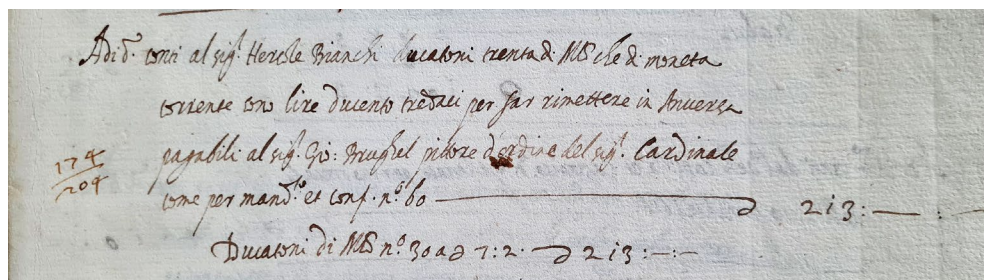 Adi d.º conti al sig.r Hercole Bianchi ducatoni trenta di Mlō che di moneta
corrente sono lire ducento tredeci per far rimettere in Anversa
174
204
pagabili al sig.r Gio: Brughel pittore d'ordine del sig.r Cardinale
come per mand.to et conf. n.º 60 213:—:—
Ducatoni di Mlō n.º 30 a 7:2.— 213:—:—